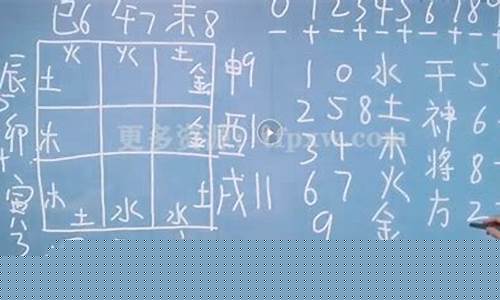 巳6 午7 未8
0 1 2 3 4 5 6 7 8
- + - + - + - + -
火 火 土
辰5 土 金 申9
1 0 水 干 5
卯4 木 金 酉10
2 5 8 土 神 6
3 4 木 将 8
寅3 木 土 水 水 土 戌11
6 7 火 方 2
9 金
更多资源